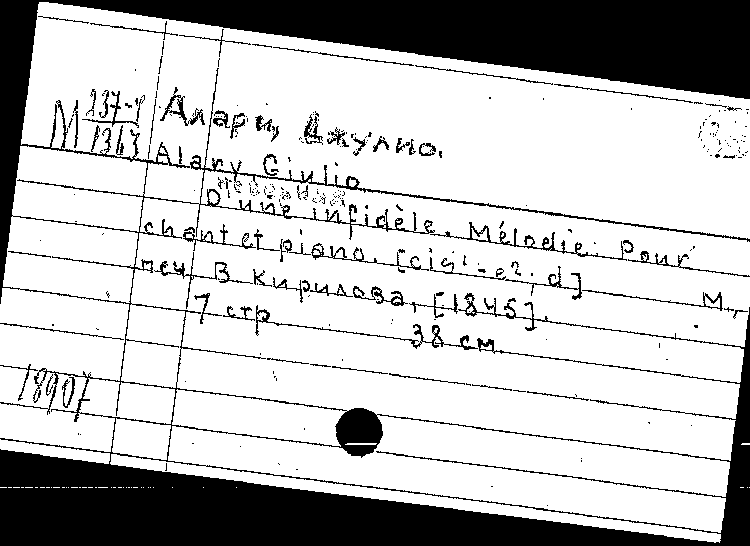 М 237-4/1363
Алари, Джулио.
Alary, Giulio
Неверная
D'une infidèle. Mélodie. Pour
chant et piano. [cis¹-e²; d] М.,
печ. В. Кирилова, [1845].
7 стр. 38 см.
18907